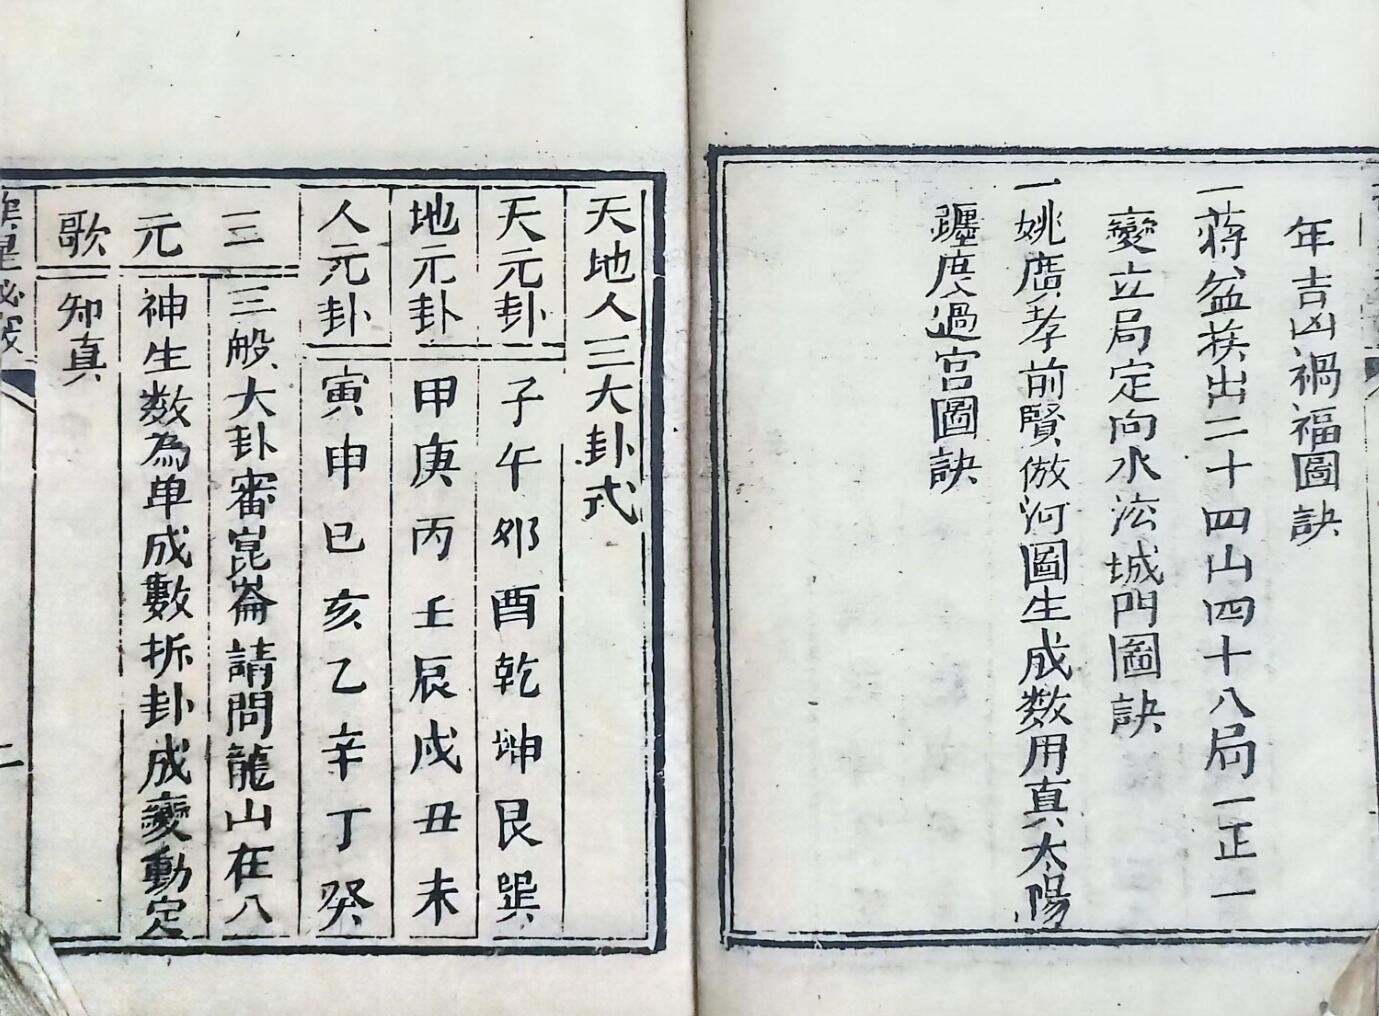 年吉凶禍福圖訣
一蔣盆挨出二十四山四十八局一正一
變立局定向水法城門圖訣
一姚廣孝前賢倣河圖生成数用真太陽
躔度過宫圖訣
天地人三大卦式
天元卦 子午卯酉乾坤艮巽
地元卦 甲庚丙壬辰戌丑未
人元卦 寅申巳亥乙辛丁癸
三元歌
三般大卦審崑崙請問龍山在八
神生数為单成數拆卦成變動定
知真
二